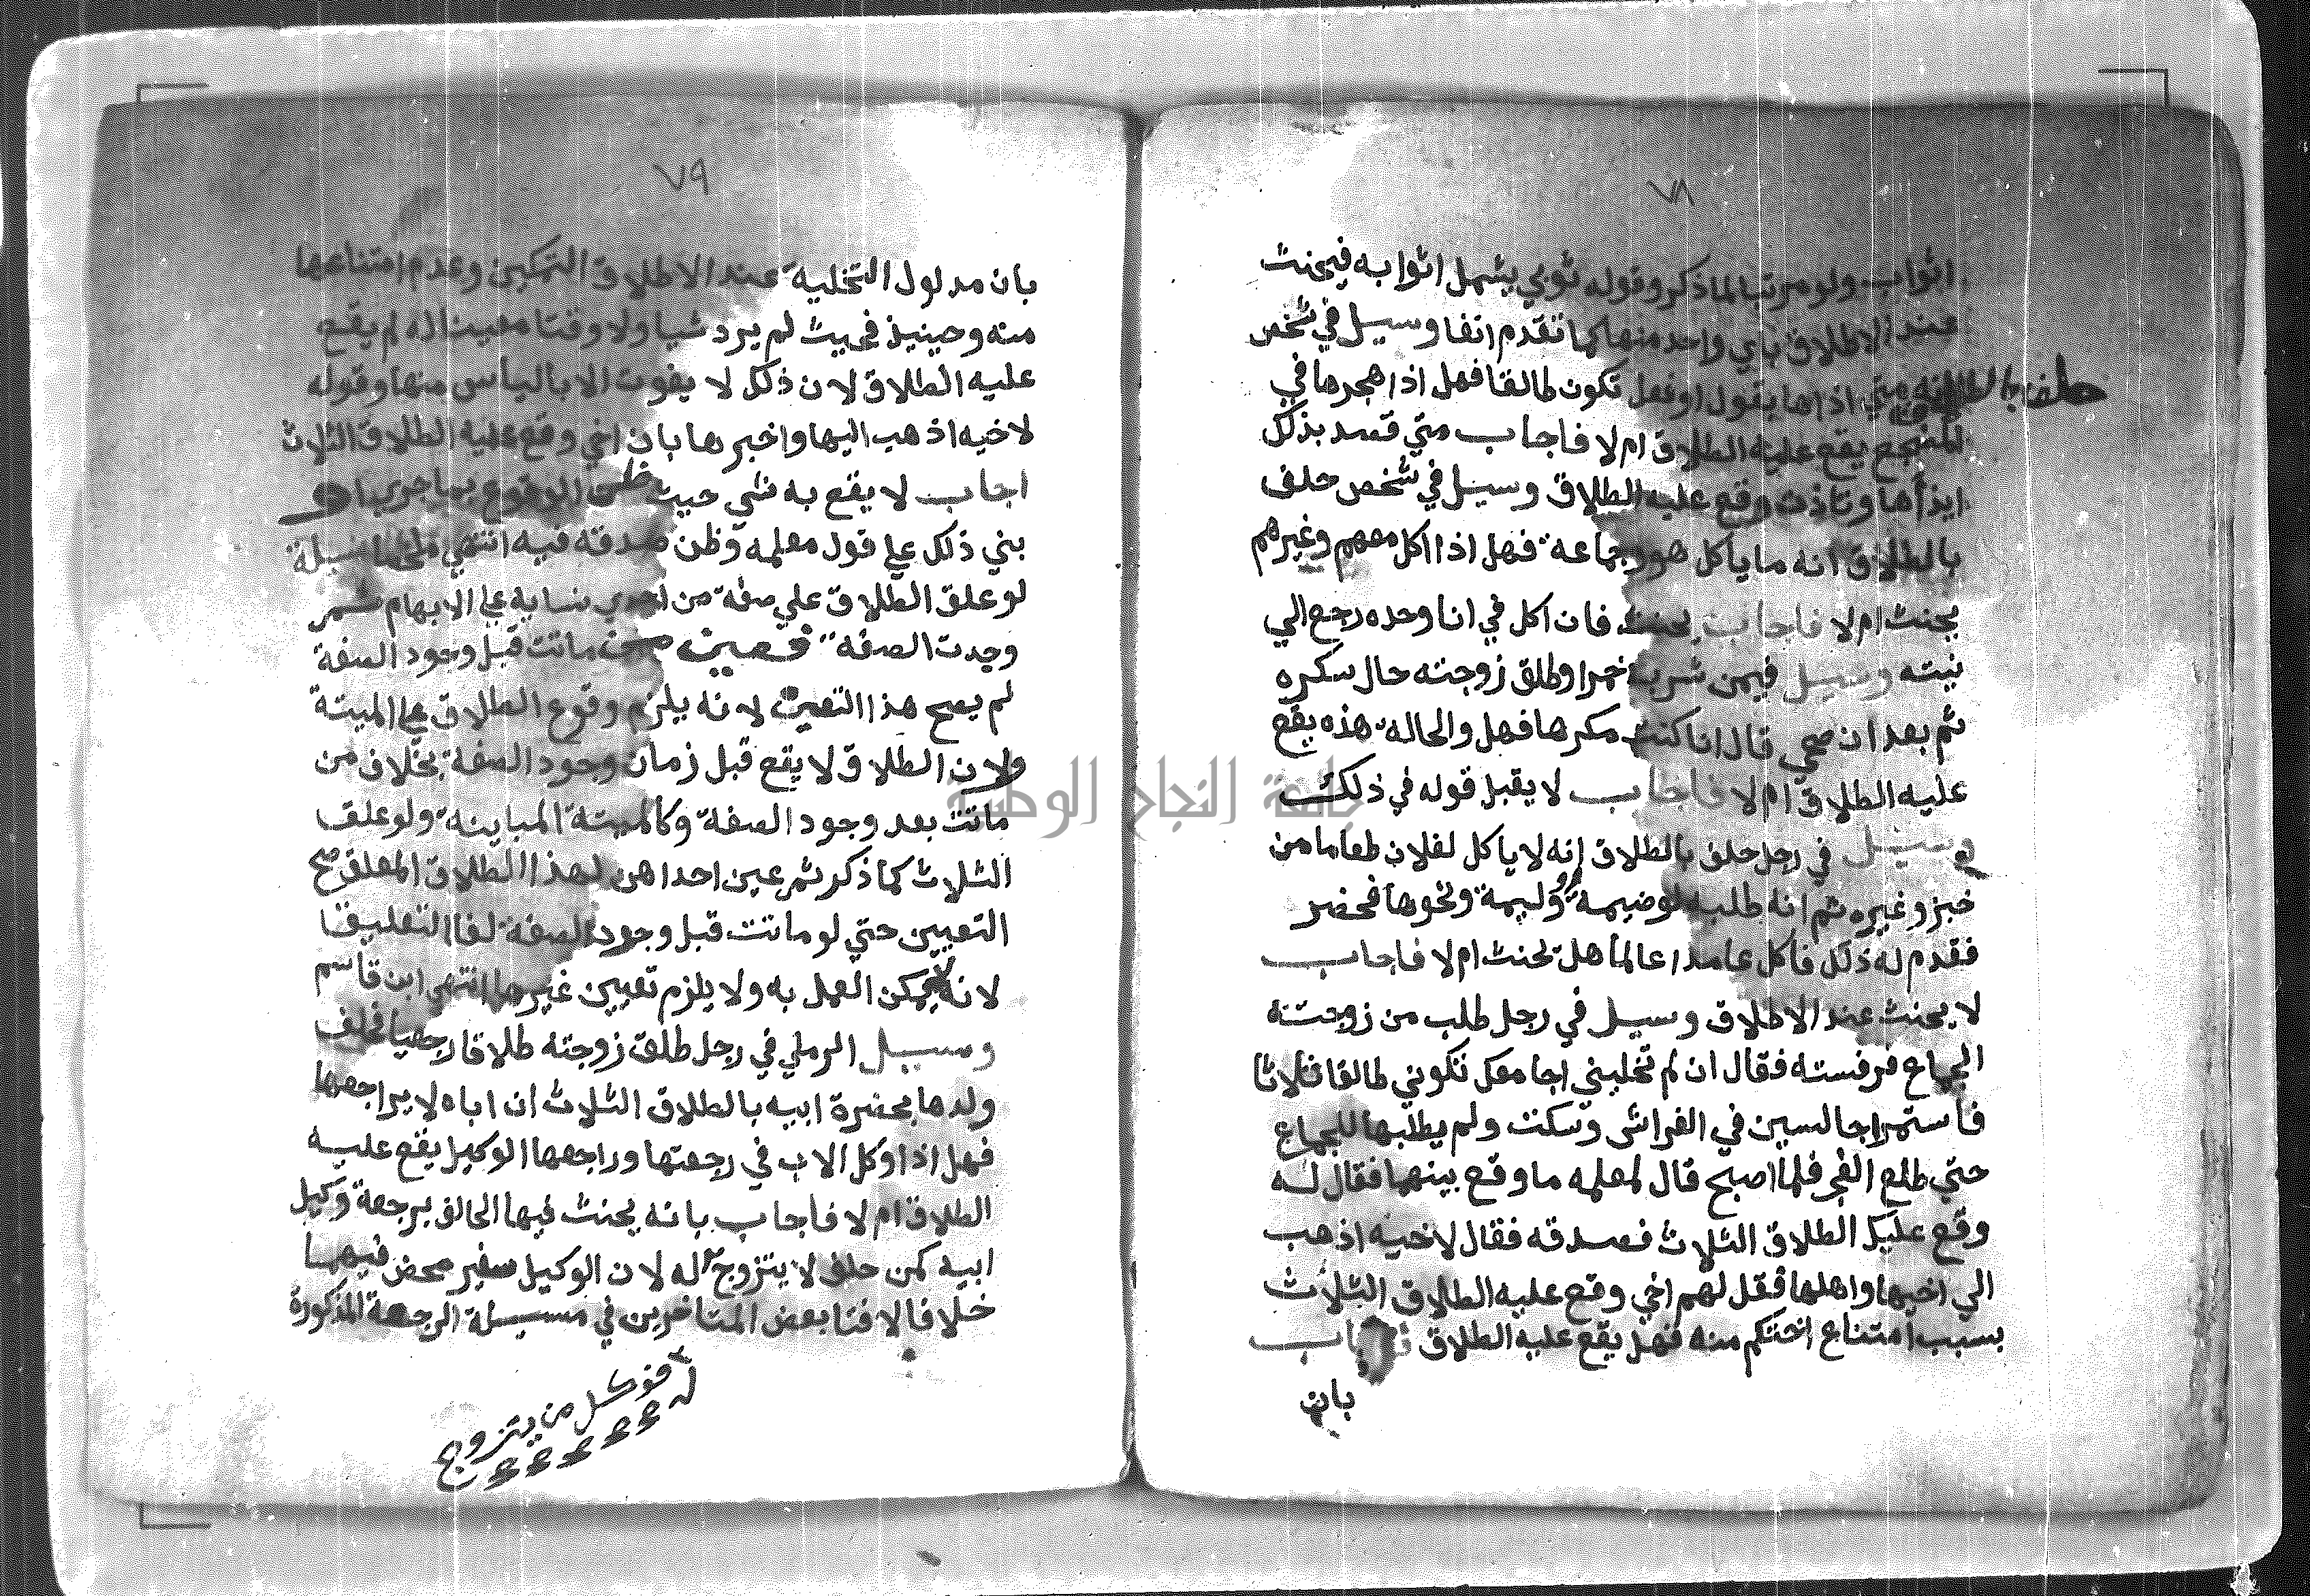 ٧٨
اثواب ولو مرتبا لما ذكر وقوله ثوبي يشمل اثوابه فيحنث
عند الاطلاق باي واحد منها كما تقدم انفا وسيل في شخص
حلف بالطلاق انه متي اذاها بقول او فعل تكون طالقا فهل اذا هجرها في
المضجع يقع عليه الطلاق ام لا فاجاب متي قصد بذلك
ايذاها وتاذت وقع عليه الطلاق وسيل في شخص حلف
بالطلاق انه ما ياكل هو وجماعة فهل اذا اكل معهم وغيرهم
يحنث ام لا فاجاب يحنث فان اكل في انا وحده رجع الي
نيته وسيل فيمن شرب خمرا وطلق زوجته حال سكره
ثم بعد ان صحي قال انا كنت مكرها فهل والحالة هذه يقع
عليه الطلاق ام لا فاجاب لا يقبل قوله في ذلك
وسيل في رجل حلف بالطلاق انه لا ياكل لفلان طعاما من
خبز وغيره ثم انه طلبه لوضيمة او وليمة ونحوها فحضر
فقدم له ذلك فاكل عامدا عالما هل يحنث ام لا فاجاب
لا يحنث عند الاطلاق وسيل في رجل طلب من زوجته
الجماع فرفسته فقال ان لم تخليني اجا معك تكوني طالقا ثلاثا
فاستمرا جالسين في الفراش وسكت ولم يطلبها للجماع
حتي طلع الفجر فلما اصبح قال لمعلمه ما وقع بينهما فقال له
وقع عليك الطلاق الثلاث فصدقه فقال لاخيه اذهب
الي اخيها واهلها فقل لهم اخي وقع عليه الطلاق الثلاث
بسبب امتناع اختكم منه فهل يقع عليه الطلاق فاجاب
بان
٧٩
بان مدلول التخلية عند الاطلاق التمكين وعدم امتناعها
منه وحينيذ فحيث لم يرد شيا ولا وقتا معينا له لم يقع
عليه الطلاق لان ذلك لا يفوت الا بالياس منها وقوله
لاخيه اذهب اليها واخبرها بان اخي وقع عليه الطلاق الثلاث
اجاب لا يقع به شي حيث ظن الوقوع بما جري
بني ذلك علي قول معلمه وظن صدقه فيه انتهي مسيلة
لو علق الطلاق علي صفة من احدي نسايه علي الابهام ثم
وجدت الصفة ماتت قبل وجود الصفة
لم يصح هذا التعيين لانه يلزم وقوع الطلاق علي الميتة
ولان الطلاق لا يقع قبل زمان وجود الصفة بخلاف من
ماتت بعد وجود الصفة وكالميتة المباينة ولو علق
الثلاث كما ذكر ثم عين احداهن لهذا الطلاق المعلق صح
التعيين حتي لو ماتت قبل وجود الصفة لغا التعليق
لانه لا يمكن العمل به ولا يلزم تعيين غيرها انتهي ابن قاسم
وسيل الرملي في رجل طلق زوجته طلاقا رجعيا فحلف
ولدها بحضرة ابيه بالطلاق الثلاث ان اباه لا يراجعها
فهل اذا وكل الاب في رجعتها وراجعها الوكيل يقع عليه
الطلاق ام لا فاجاب بانه يحنث فيها الحالف برجعة وكيل
ابيه كمن حلف لا يتزوج له لان الوكيل سفير محض فيهما
خلافا لافتا بعض المتاخرين في مسيلة الرجعة المذكورة
فوكل من يتزوج له
جامعة النجاح الوطنية